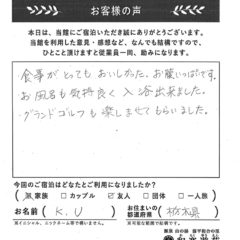 お客様の声
本日は、当館にご宿泊いただき誠にありがとうございます。
当館を利用した意見・感想など、なんでも結構ですので、
ひとこと頂けますと従業員一同、励みになります。
食事がとっても おいしかった。お腹いっぱいです。
お風呂も気持良く入浴出来ました。
グランドゴルフも楽しませてもらいました。
今回のご宿泊はどなたとご利用になりましたか?
家族 □カップル 友人 □団体 □一人旅
お名前 K.U お住まいの都道府県 栃木県